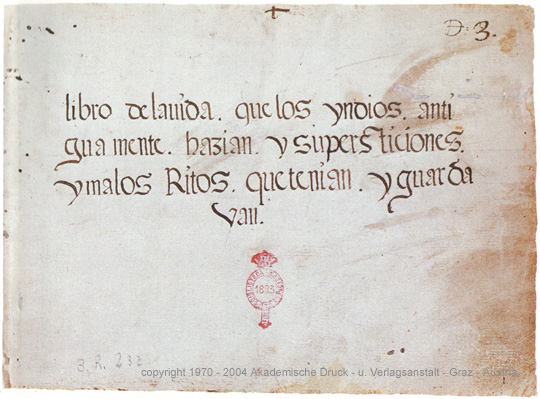 D. 3.
libro dela uida . que los yndios . anti
gua mente . hazian . y supersticiones.
y malos Ritos . que tenian . y guarda
uan .
1893
B. R. 232
copyright 1970 - 2004 Akademische Druck - u. Verlagsanstalt - Graz - Austria